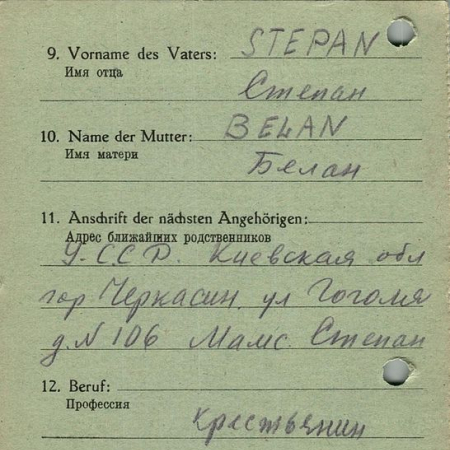 9. Vorname des Vaters: STEPAN
Имя отца
Степан
10. Name der Mutter: BELAN
Имя матери
Белан
11. Anschrift der nächsten Angehörigen:
Адрес ближайших родственников
У.С.С.Р. Киевская обл
гор Черкасин ул Гоголя
д N 106 Мамс Степан
12. Beruf:
Профессия
Крестьянин